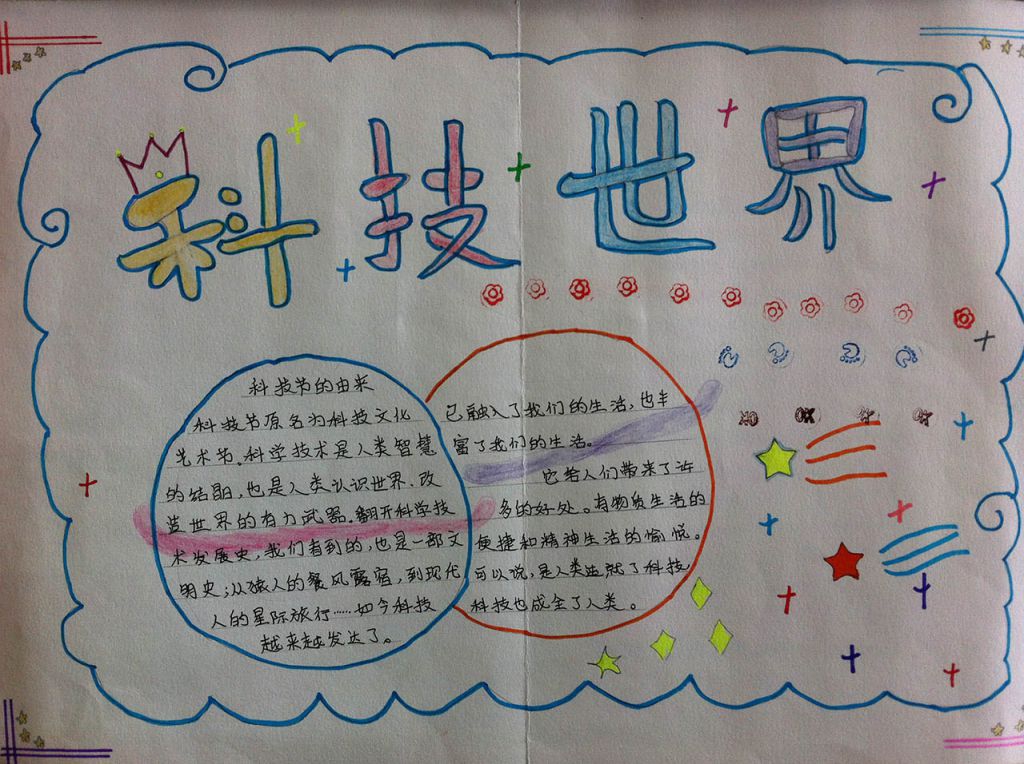 科技世界
科技节的由来
科技节原名为科技文化
艺术节。科学技术是人类智慧
的结晶，也是人类认识世界、改
造世界的有力武器。翻开科学技
术发展史，我们看到的，也是一部文
明史；从猿人的餐风露宿，到现代
人的星际旅行……如今科技
越来越发达了。
已融入了我们的生活，也丰
富了我们的生活。
它给人们带来了许
多的好处。有物质生活的
便捷和精神生活的愉悦。
可以说，是人类造就了科技，
科技也成全了人类。